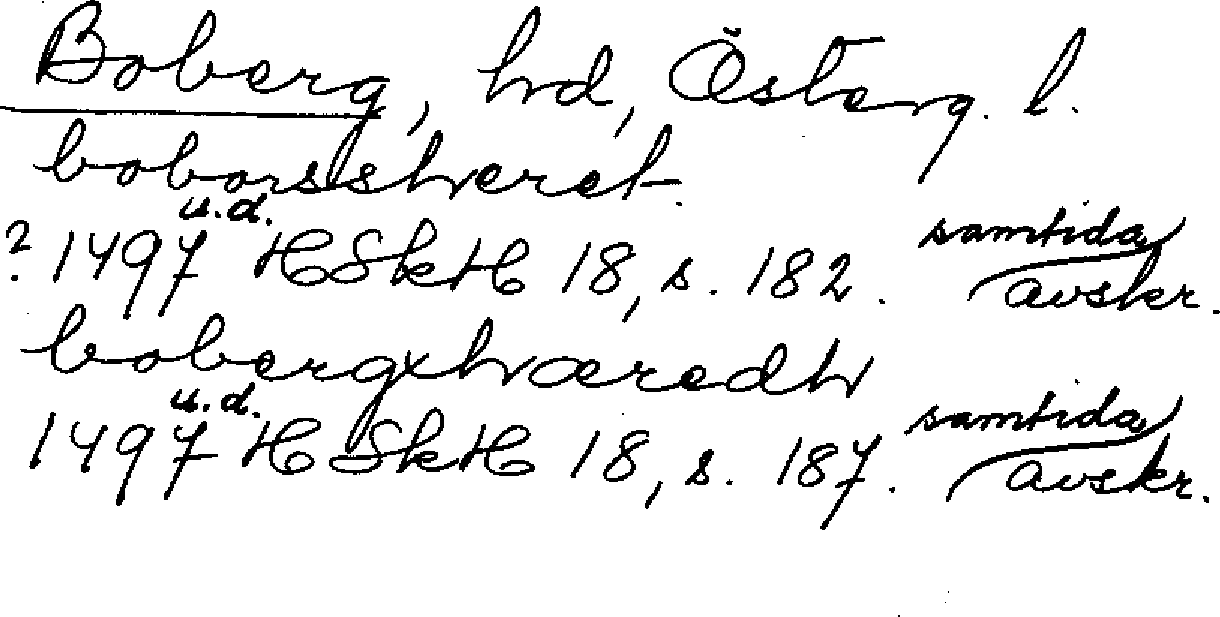 Boberg, hd, Österg. l.
boborssheret.
? 1497 u.d. HSkH 18, s. 182. samtida avskr.
bobergxhæredh
1497 u.d. HSkH 18, s. 187. samtida avskr.